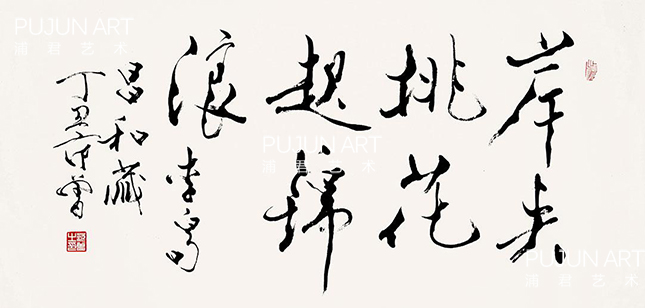 岸夹
桃花
起锦
浪 李白句
昌和藏
丁丑范曾
PUJUN ART
浦君艺术
PUJUN ART
浦君艺术
PUJUN ART
浦君艺术